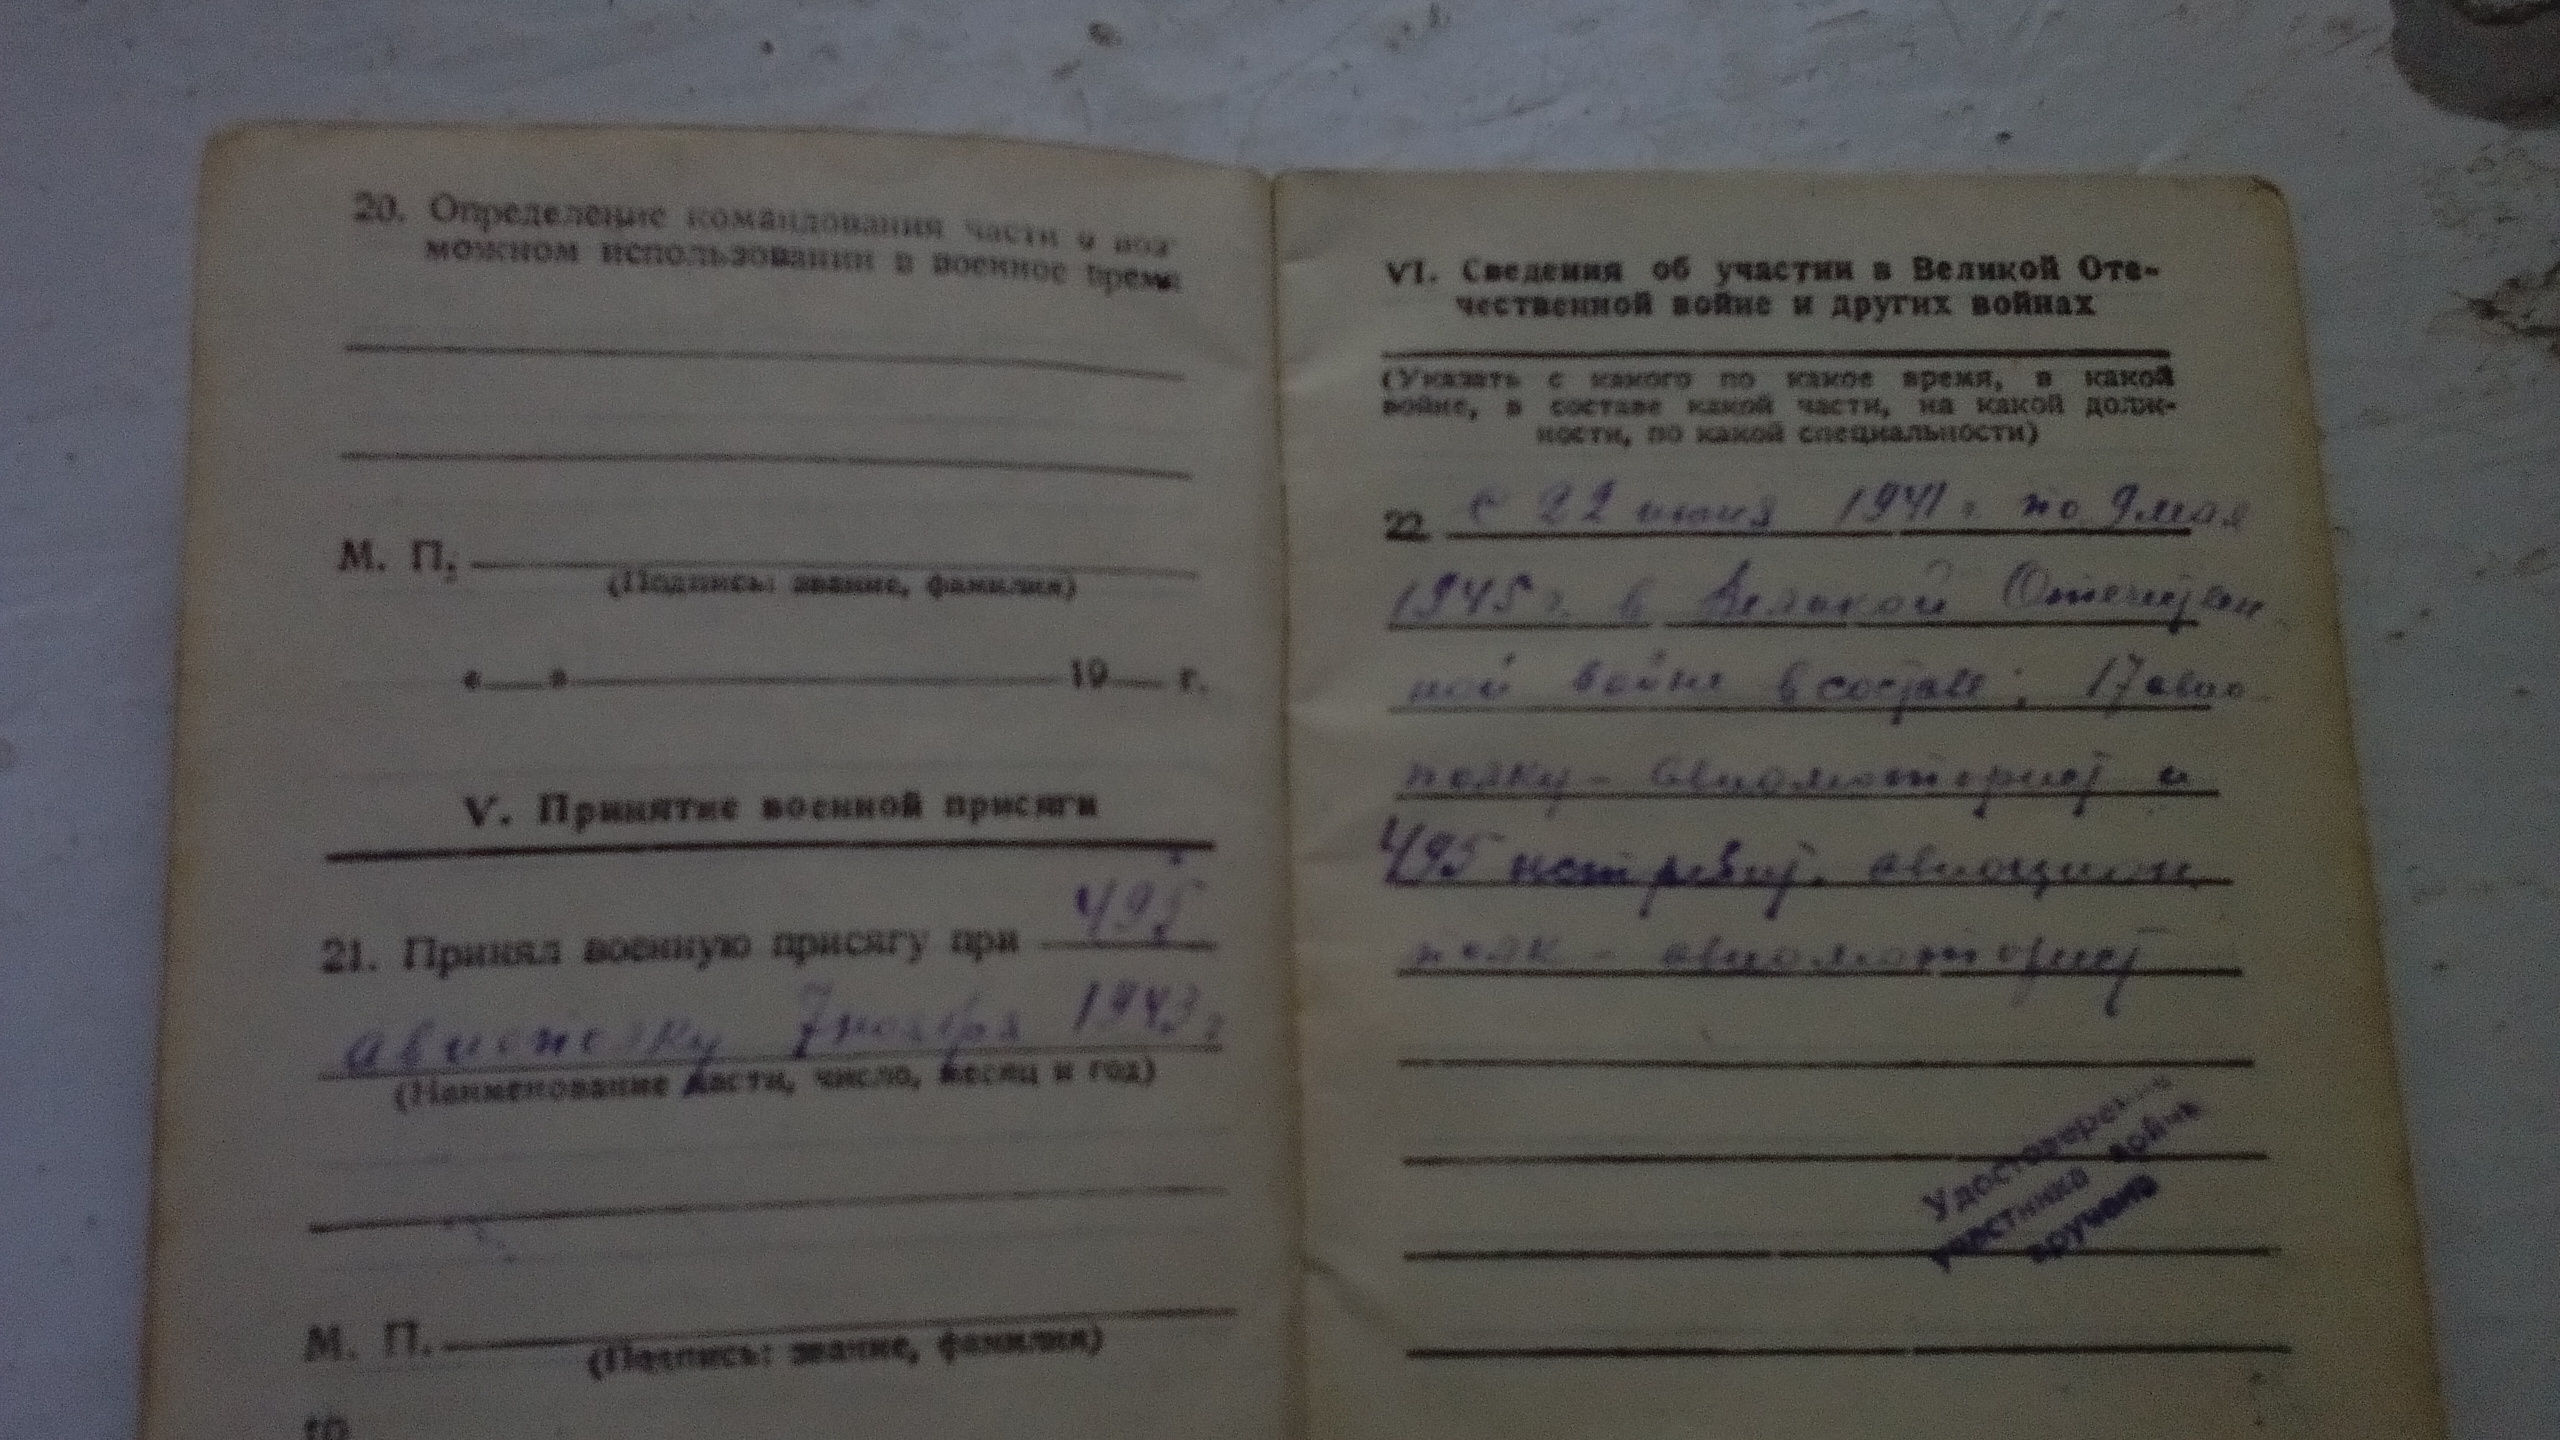 20. Определение команлования части о воз
можном использовании в военное время
М. П.
(Подпись: звание, фамилия)
« » 19 г.
V. Принятие военной присяги
21. Принял военную присягу при 495
авиополку 7 ноября 1943 г
(Наименование части, число, месяц и год)
М. П.
(Подпись: звание, фамилия)
VI. Сведения об участии в Великой Оте-
чественной войне и других войнах
(Указать с какого по какое время, в какой
войне, в составе какой части, на какой долж-
ности, по какой специальности)
22 с 22 июня 1941 г по 9 мая
1945 г. в Великой Отечествен
ной войне в составе: 17 авиа
полку - авиамоторист и
495 авиацион.
полк - авиамоторист
Удостоверение
участника войны
вручено